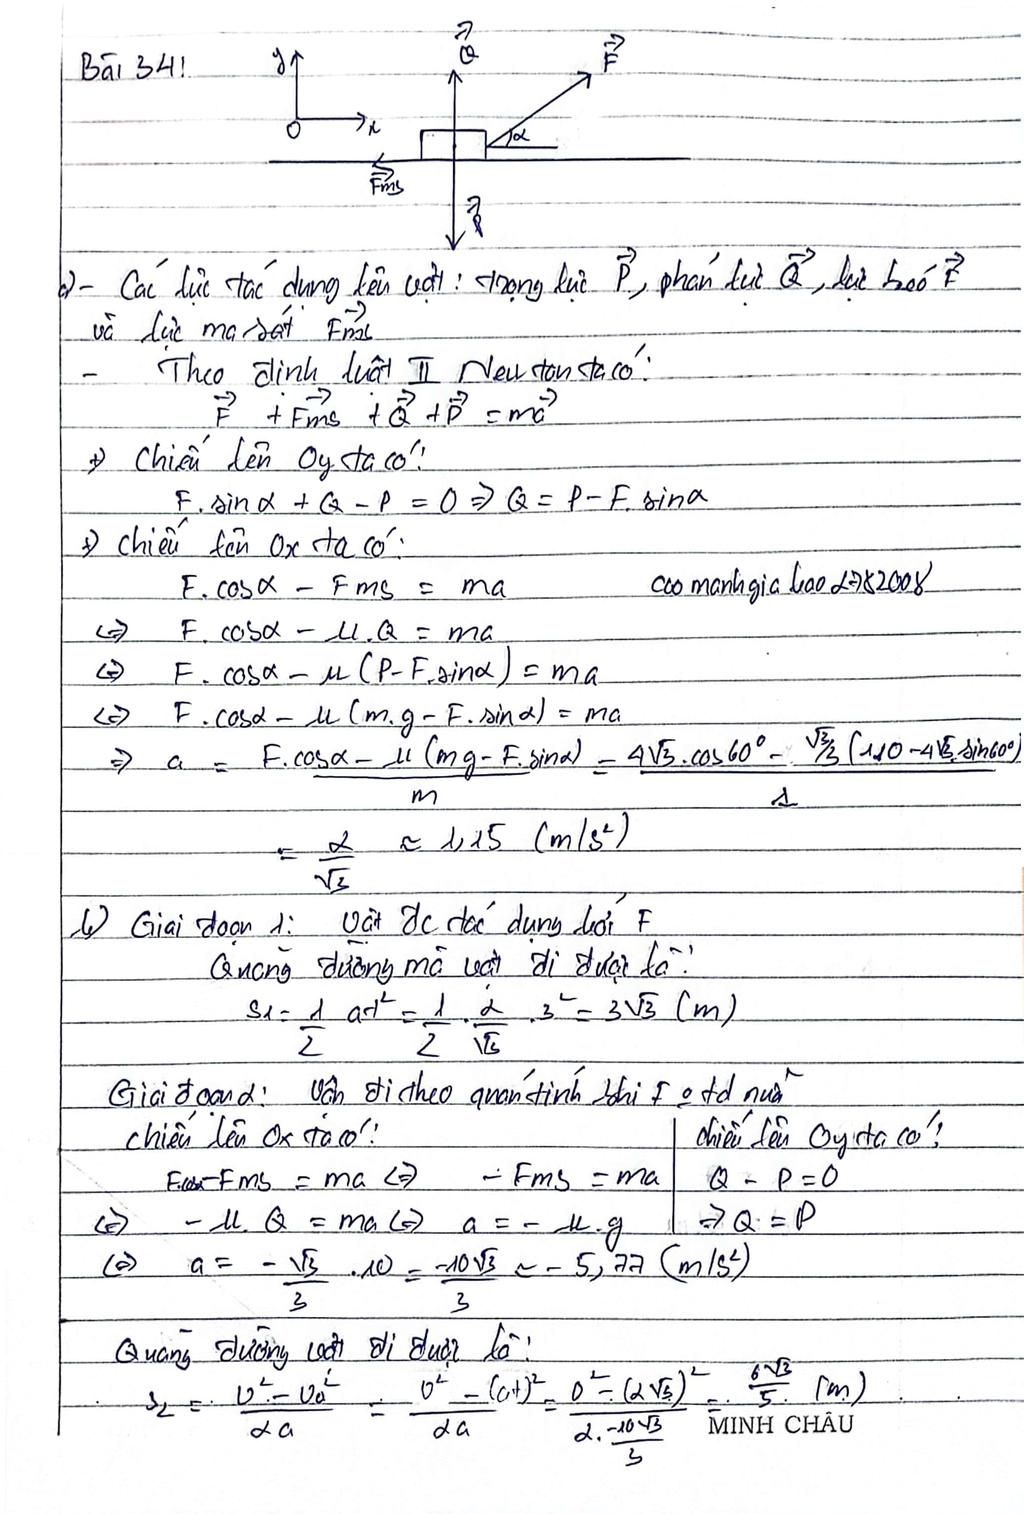 Bài 34:
y
Q
F
O
x
α
Fms
P
a) - Các lực tác dụng lên vật: trọng lực P, phản lực Q, lực kéo F
và lực ma sát Fms
- Theo định luật II Neuton ta có:
F + Fms + Q + P = ma
+) Chiếu lên Oy ta có:
F.sinα + Q - P = 0 => Q = P - F.sinα
+) Chiếu lên Ox ta có:
F.cosα - Fms = ma
cao manh gia bao 2782008
<=> F.cosα - μ.Q = ma
<=> F.cosα - μ(P - F.sinα) = ma
<=> F.cosα - μ(m.g - F.sinα) = ma
=> a = (F.cosα - μ(mg - F.sinα))/m = (4√3.cos60° - √3/3 (1.10 - 4√3.sin60°))/1
= 2/√3 ≈ 1,15 (m/s²)
b) Giai đoạn 1: Vật đc tác dụng bởi F
Quãng đường mà vật đi được là:
S1 = 1/2 at² = 1/2 . 2/√3 . 3² = 3√3 (m)
Giai đoạn 2: Vân đi theo quán tính khi F o td nữa
chiếu lên Ox ta có:
chiếu lên Oy ta có:
-Fms = ma <=> -Fms = ma
Q - P = 0
<=> -μ.Q = ma <=> a = -μ.g
=> Q = P
<=> a = -√3/3 .10 = -10√3/3 ≈ -5,77 (m/s²)
Quãng đường vật đi được là:
S2 = (v² - v0²)/2a = (0² - (at)²)/2a = (0² - (2√3)²)/(2.-10√3/3) = 6√3/5 (m)
MINH CHÂU